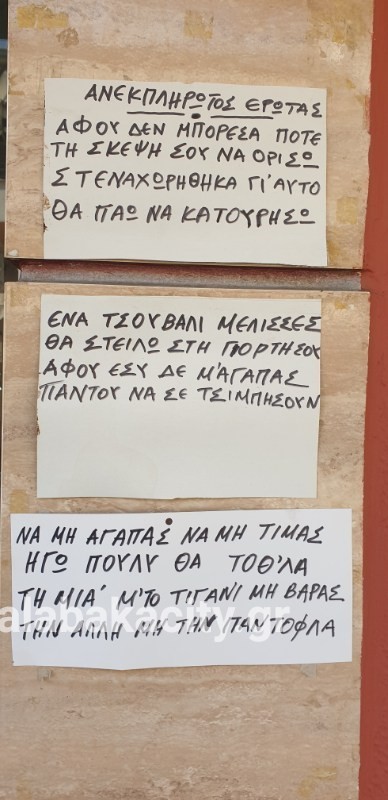 ΑΝΕΚΠΛΗΡΩΤΟΣ ΕΡΩΤΑΣ
ΑΦΟΥ ΔΕΝ ΜΠΟΡΕΣΑ ΠΟΤΕ
ΤΗ ΣΚΕΨΗ ΣΟΥ ΝΑ ΟΡΙΣΩ
ΣΤΕΝΑΧΩΡΗΘΗΚΑ ΓΙ'ΑΥΤΟ
ΘΑ ΠΑΩ ΝΑ ΚΑΤΟΥΡΗΣΩ
ΕΝΑ ΤΣΟΥΒΑΛΙ ΜΕΛΙΣΣΕΣ
ΘΑ ΣΤΕΙΛΩ ΣΤΗ ΓΙΟΡΤΗ ΣΟΥ
ΑΦΟΥ ΕΣΥ ΔΕ Μ'ΑΓΑΠΑΣ
ΠΑΝΤΟΥ ΝΑ ΣΕ ΤΣΙΜΠΗΣΟΥΝ
ΝΑ ΜΗ ΑΓΑΠΑΣ ΝΑ ΜΗ ΤΙΜΑΣ
ΗΓΩ ΠΟΥΛΥ ΘΑ ΤΟΘ'ΛΑ
ΤΗ ΜΙΑ' Μ'ΤΟ ΤΙΓΑΝΙ ΜΗ ΒΑΡΑΣ
alabakacity.gr
ΤΗΝ ΑΛΛΗ ΜΗ ΤΗΝ ΠΑΝΤΟΦΛΑ